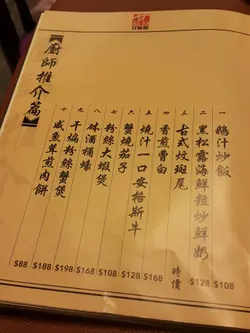 【廚師推介篇】
一 鵝汁炒飯 $108
二 黑松露海鮮粒炒鮮奶 $128
三 古式炆斑尾 時價
四 香煎曹白 $168
五 燒汁一口安格斯牛 $128
六 蟹燒茄子 $108
七 粉絲大蝦煲 $168
八 砵酒桶蠔 $198
九 干煸粉絲蟹煲 $188
十 咸魚茸煎肉餅 $88